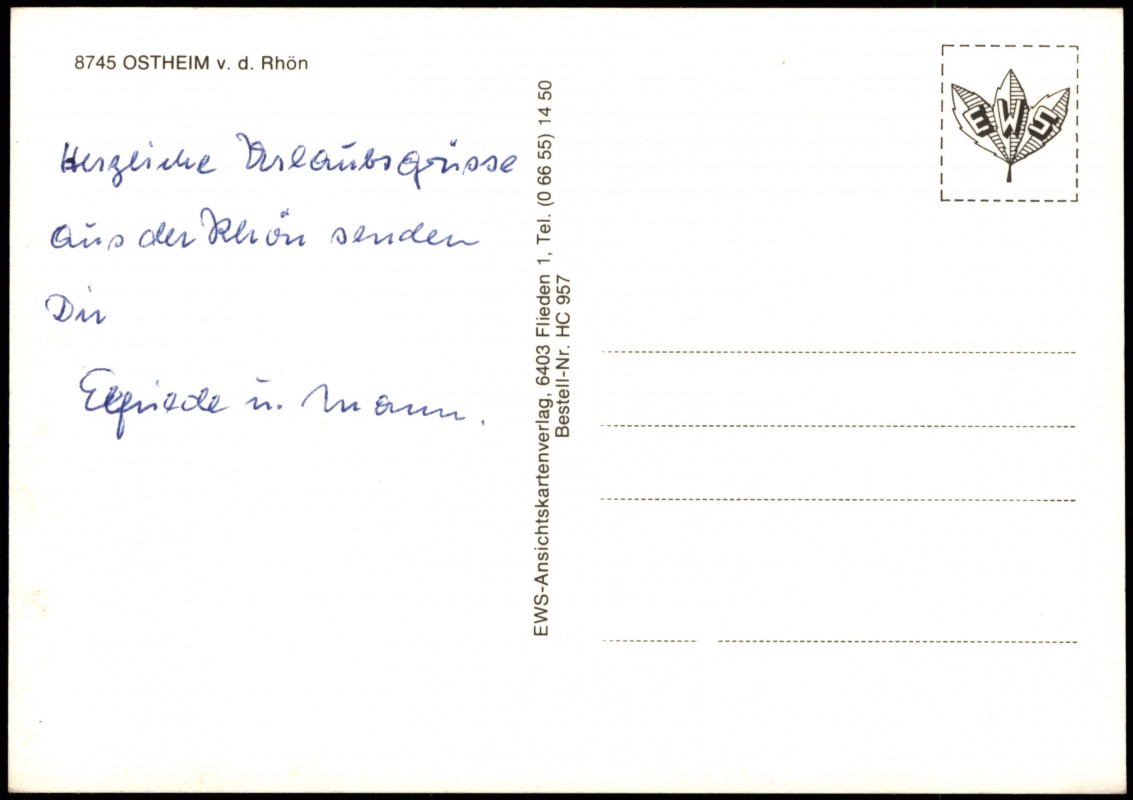 8745 OSTHEIM v. d. Rhön
Herzliche Urlaubsgrüsse
aus der Rhön senden
Dir
Elfriede u. Mann.
EWS-Ansichtskartenverlag, 6403 Flieden 1, Tel. (0 66 55) 14 50
Bestell-Nr. HC 957
EWS